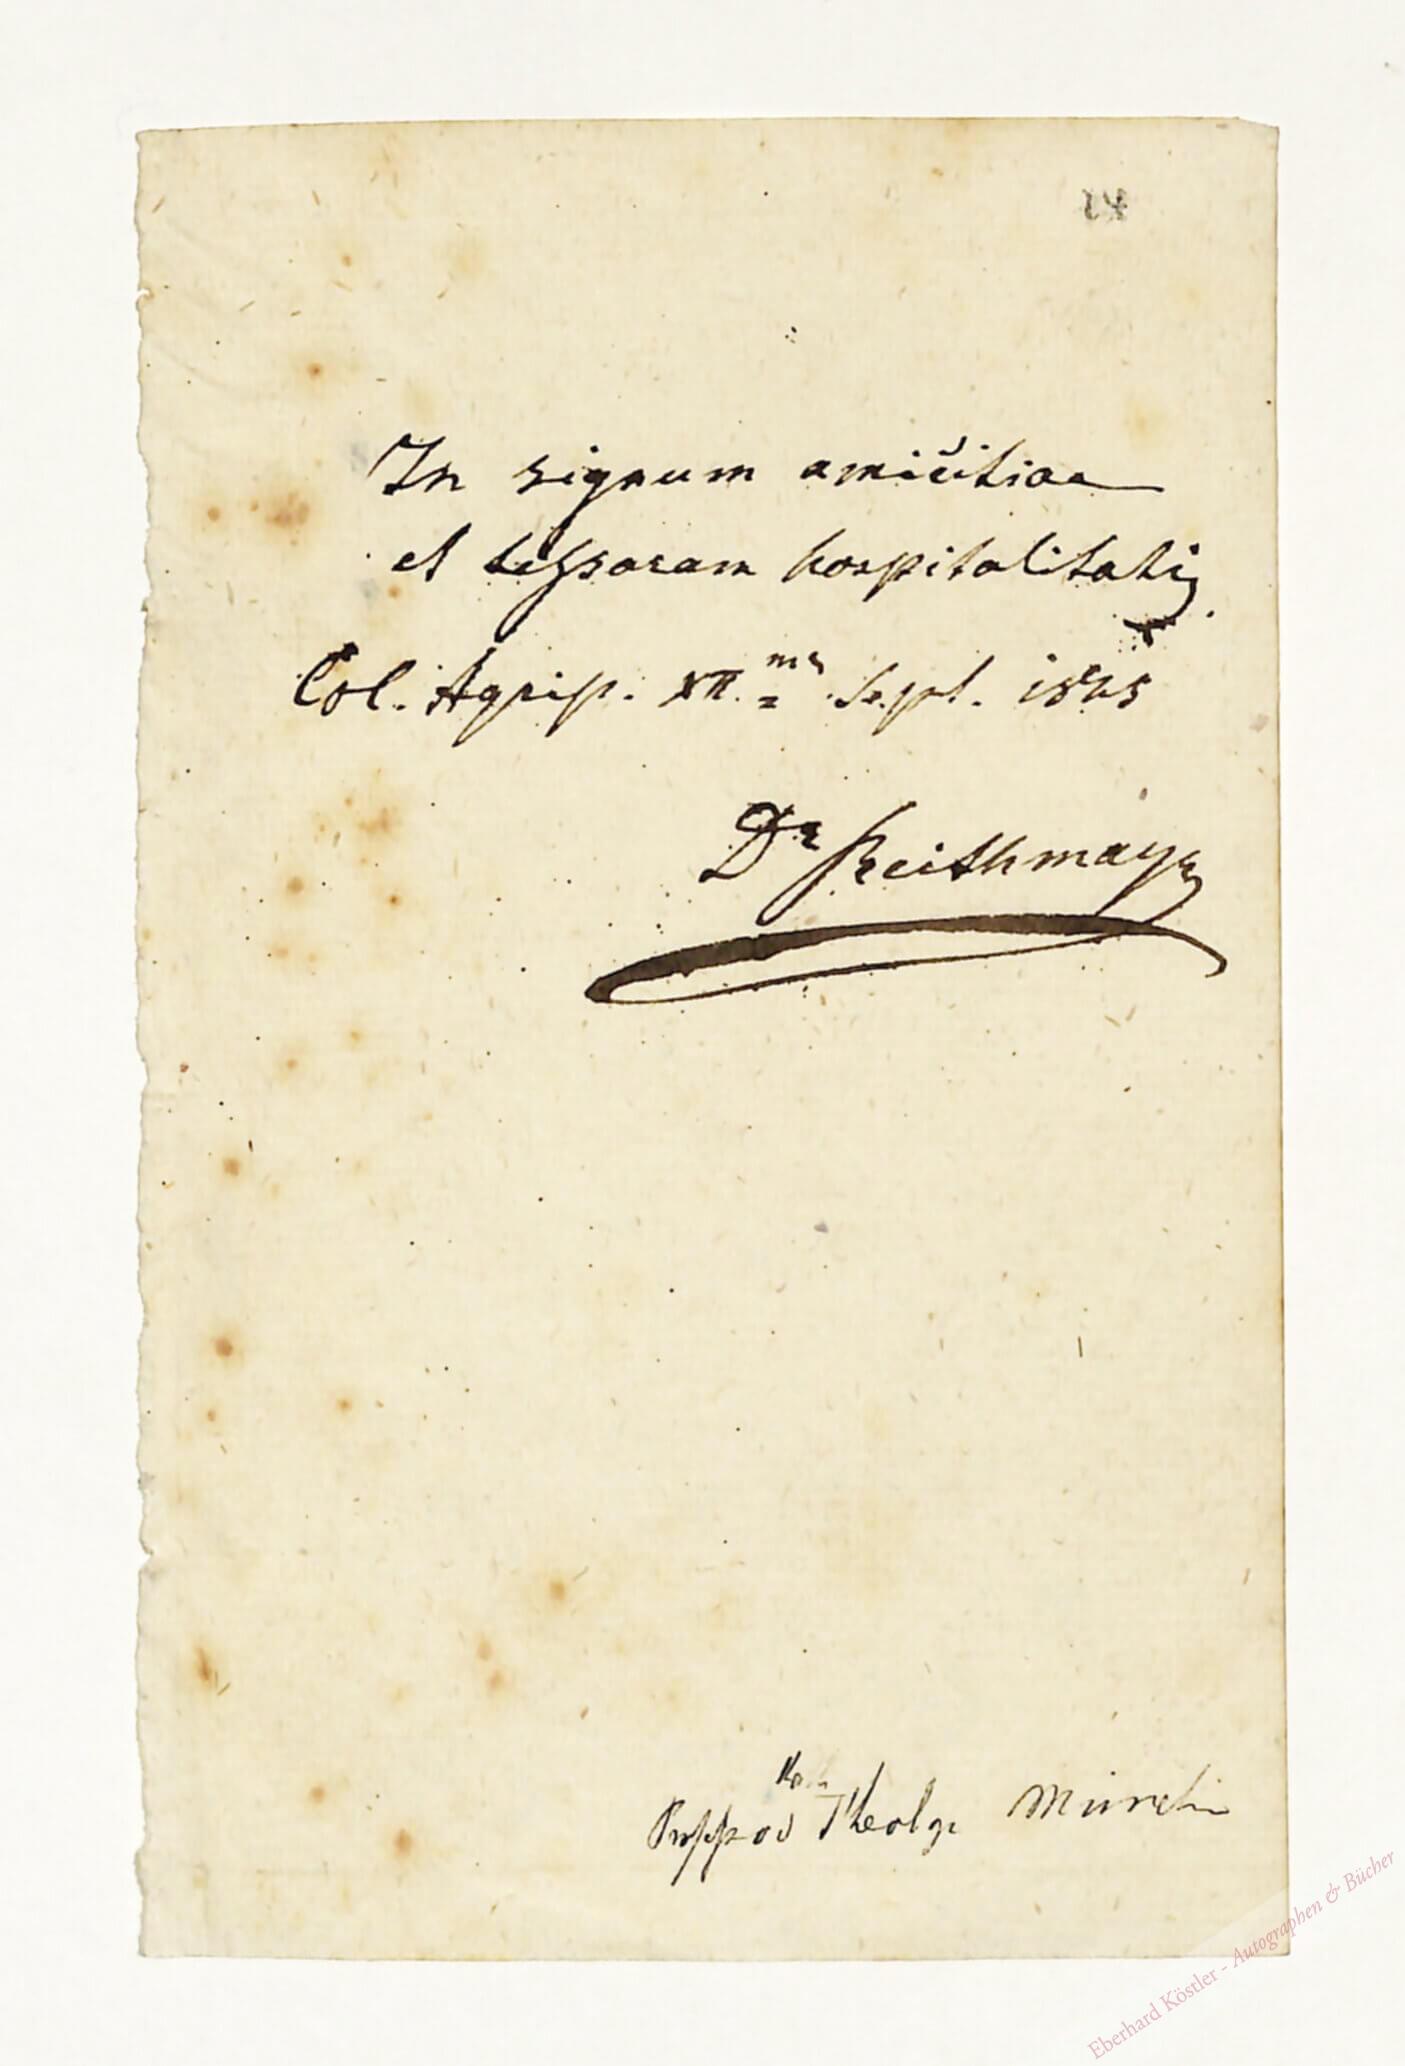 24
In signum amicitiae
et tesseram hospitalitatis.
Col. Agrip. XII.ma Sept. 1845
Dr Reithmayr
Professor Theolge München
Eberhard Köstler - Autographen & Bücher